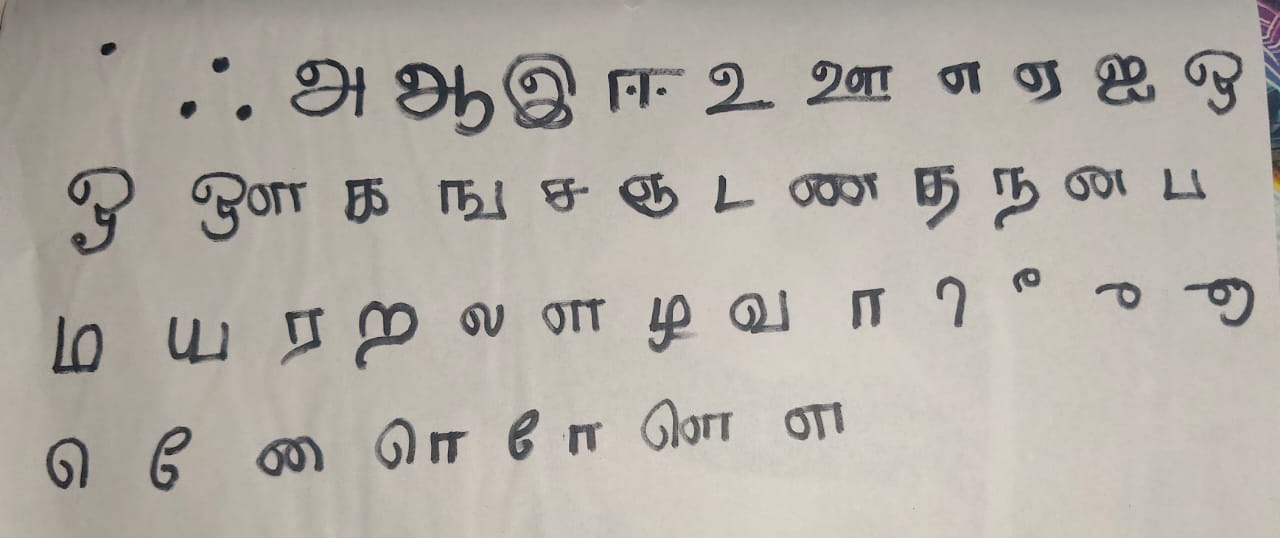 ஂ ஃ அ ஆ இ ஈ உ ஊ எ ஏ ஐ ஒ
ஓ ஔ க ங ச ஞ ட ண த ந ன ப
ம ய ர ற ல ள ழ வ ா ி ீ ு ூ
ெ ே ை ொ ோ ௌ ௗ